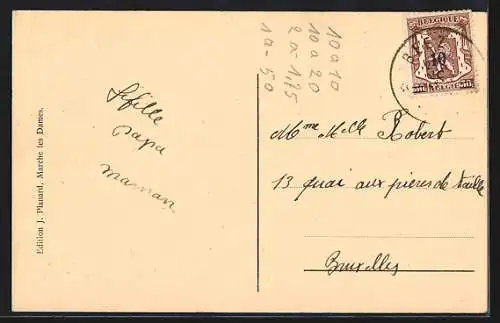 Edition J. Planard, Marche les Dames.
Papa
maman
10 a 10
10 a 20
2 a - 1,75
1 a - 50
BELGIQUE
10
BELGIE
Mme Melle Robert
13 Quai aux pierres de taille
Bruxelles